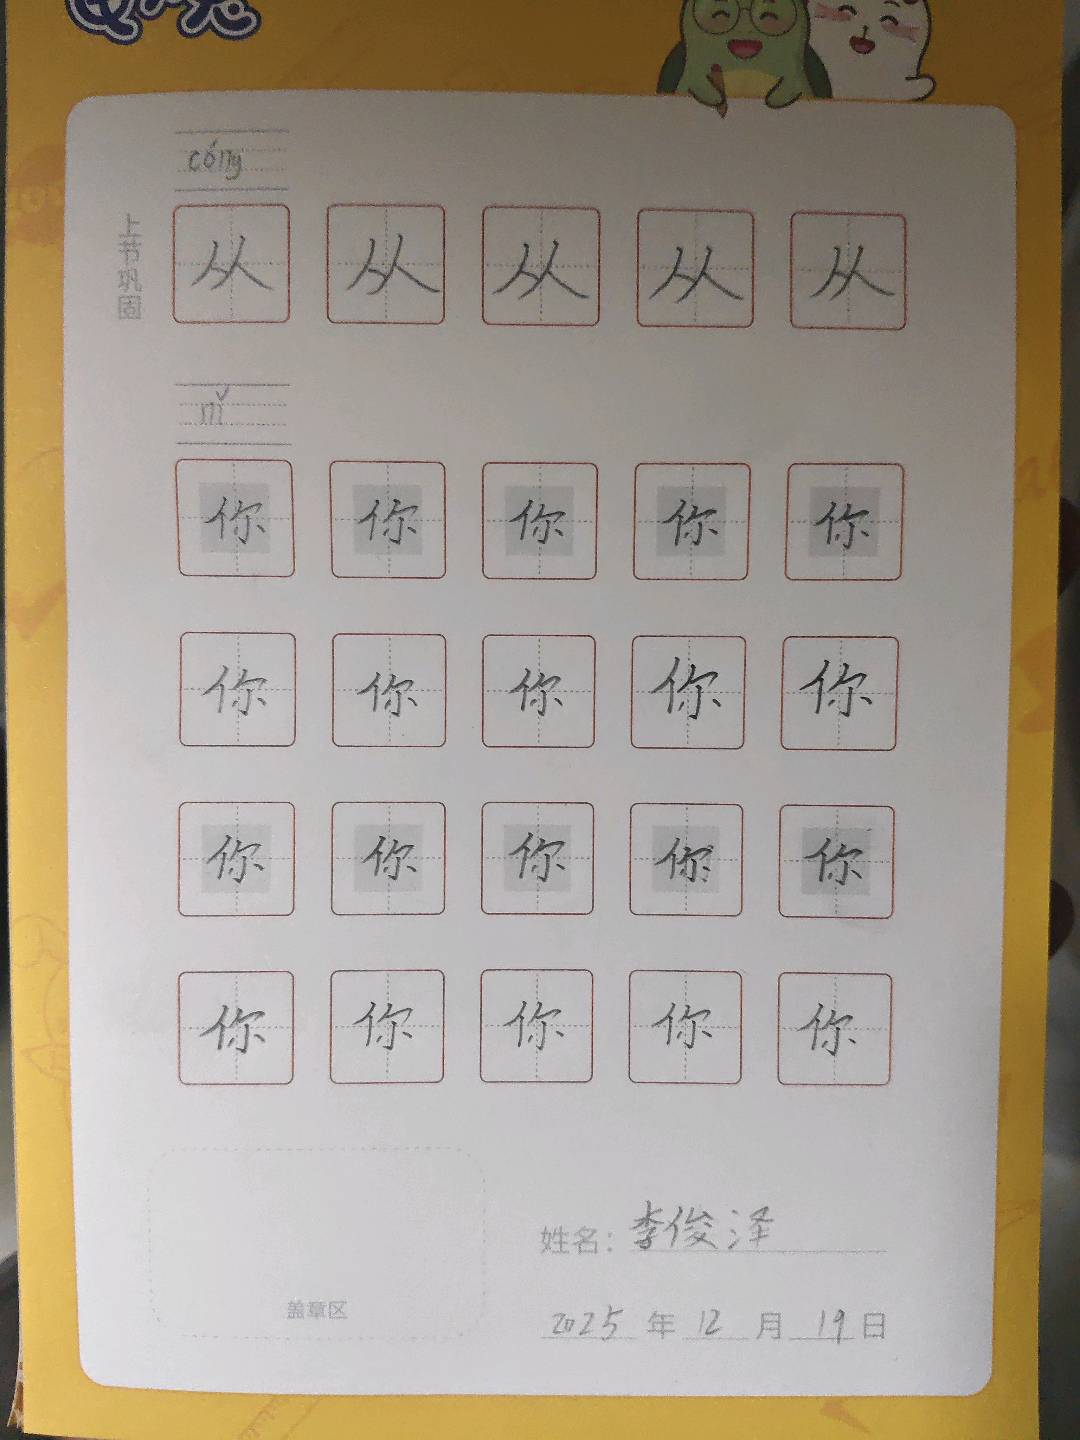 cóng
上节巩固
从 从 从 从 从
nǐ
你 你 你 你 你
你 你 你 你 你
你 你 你 你 你
你 你 你 你 你
姓名: 李俊泽
盖章区
2025 年 12 月 19 日